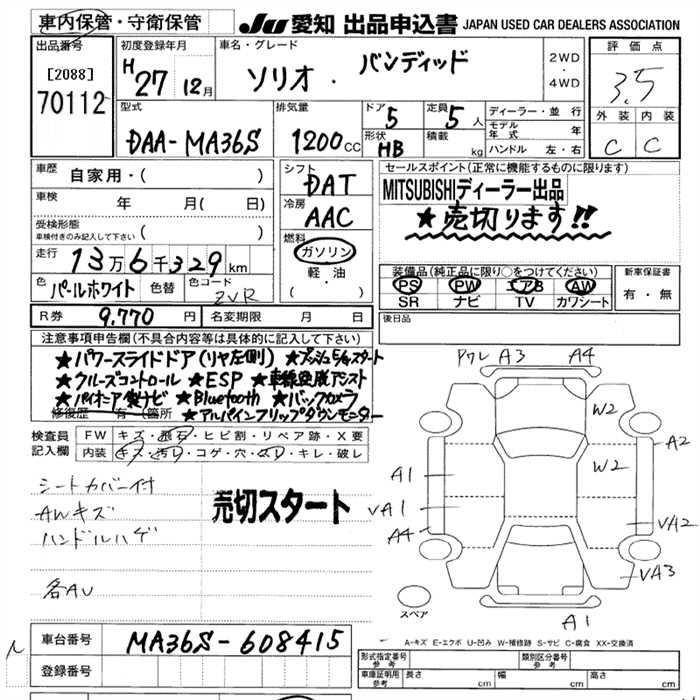 車内保管・守衛保管
JU 愛知 出品申込書 JAPAN USED CAR DEALERS ASSOCIATION
出品番号
[2088]
70112
初度登録年月
H 27 12月
車名・グレード
ソリオ・ バンディッド
2WD
・
4WD
評価点
3.5
外装 内装
C C
型式
DAA-MA36S
排気量
1200cc
ドア 5
形状 HB
定員 5人
積載 kg
ディーラー・並行
モデル年式 年
ハンドル 左・右
車歴
自家用・( )
車検 年 月( 日)
受検形態
車検付きのみ記入して下さい ( )
走行 13万6千329km
色 パールホワイト 色替 色コード ZVR
R券 9,770円 名変期限 月 日
シフト
DAT
冷房
AAC
燃料
ガソリン
軽油
・( )
セールスポイント(正常に機能するものに限ります)
MITSUBISHIディーラー出品
★売切ります!!
装備品(純正品に限り○をつけてください)
PS PW エアB AW
SR ナビ TV カワシート
新車保証書
有・無
後日品
注意事項申告欄(不具合内容等は具体的に記入して下さい)
★パワースライドドア(リヤ左側) ★プッシュスタート
★クルーズコントロール ★ESP ★車線逸脱アシスト
★パイオニア製ナビ ★Bluetooth ★バックカメラ
修復歴 有 (箇所 ★アルパインフリップダウンモニター
検査員記入欄
FW キズ・飛石・ヒビ割・リペア跡・X要
内装 キズ・汚レ・コゲ・穴・スレ・キレ・破レ
シートカバー付
AWキズ
ハンドルハゲ
各AU
売切スタート
ワレ A3 A4
W2
A2
W2
A1
VA1
VA2
A4
VA3
スペア
A1
A-キズ E-エクボ U-凹み W-補修跡 S-サビ C-腐食 XX-交換済
車台番号 MA36S-608415
登録番号
形式指定番号
参考
類別区分番号
参考
車庫証明用
参考
長さ cm 幅 cm 高さ cm